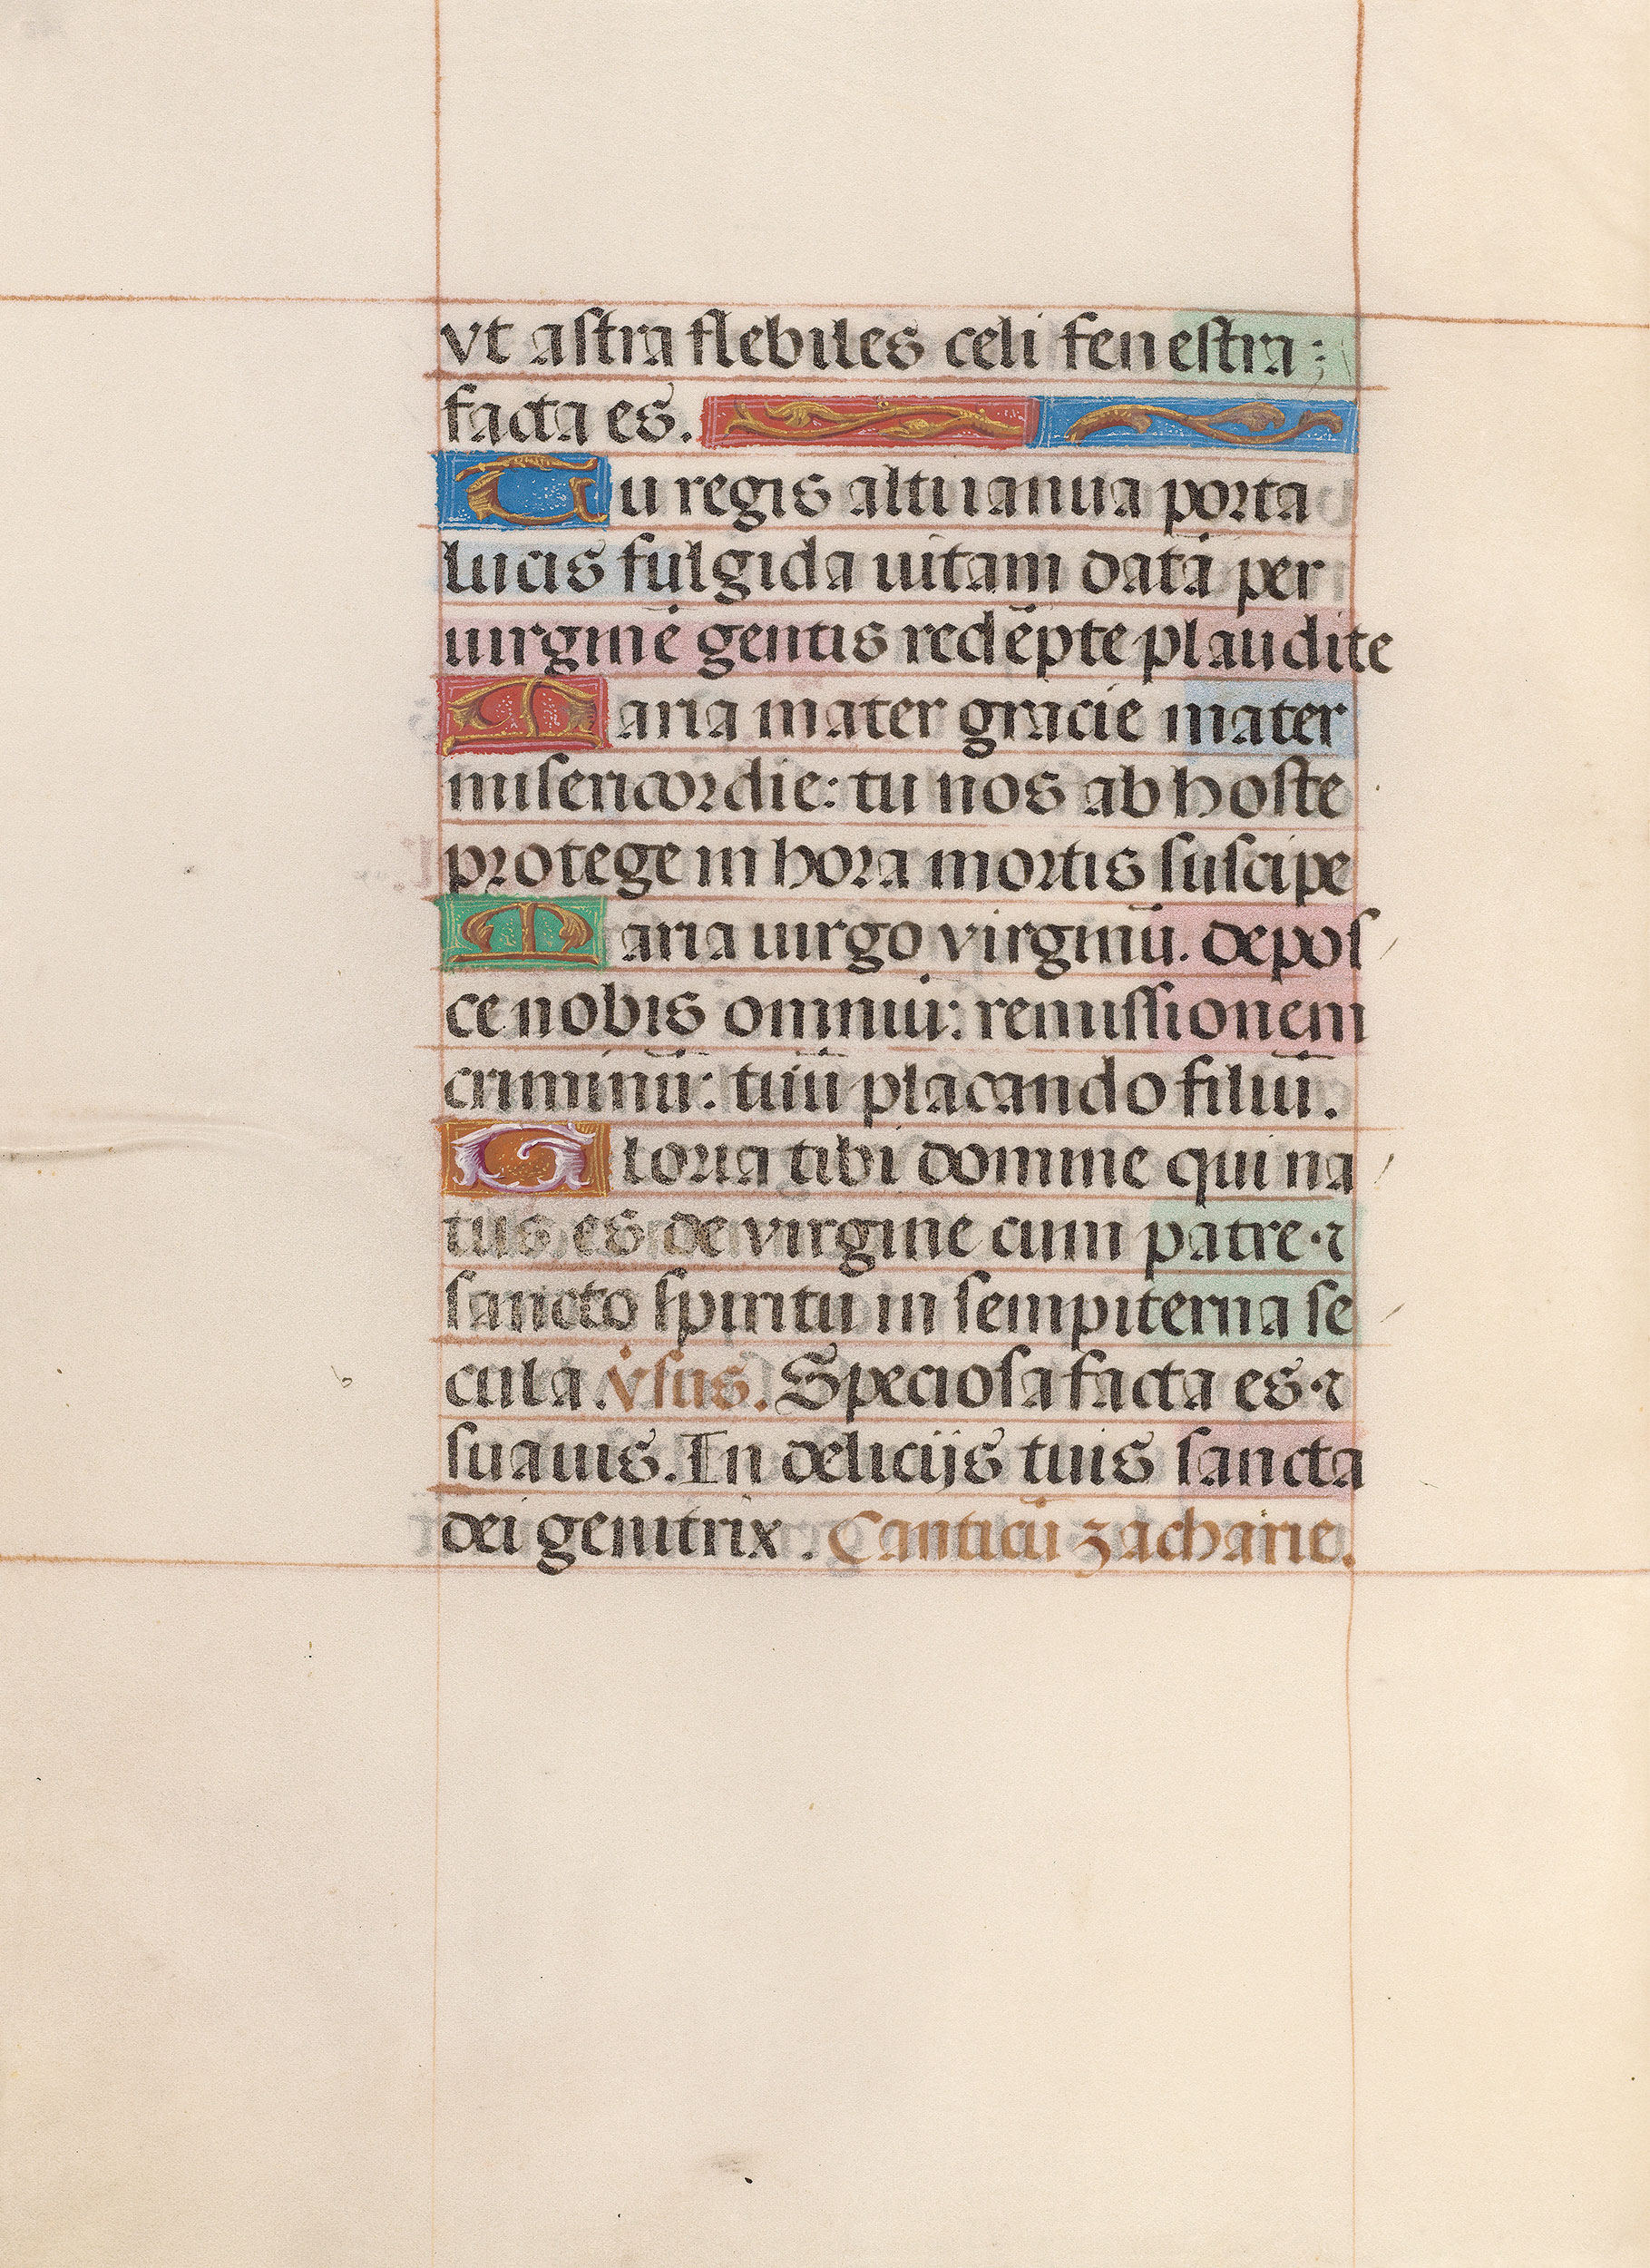 vt astra flebiles celi fenestra:
facta es.
Tu regis alti ianua porta
lucis fulgida uitam datā per
uirginē gentis redēpte plaudite
Maria mater gracie mater
misericordie: tu nos ab hoste
protege in hora mortis suscipe
Maria uirgo virginū. depos
ce nobis omniū: remissionem
criminū: tuū placando filiū.
Gloria tibi domine qui na
tus es de virgine cum patre ⁊
sancto spiritu in sempiterna se
cula. v̇sus. Speciosa facta es ⁊
suauis. In delicijs tuis sancta
dei genitrix. Canticū zacharie.